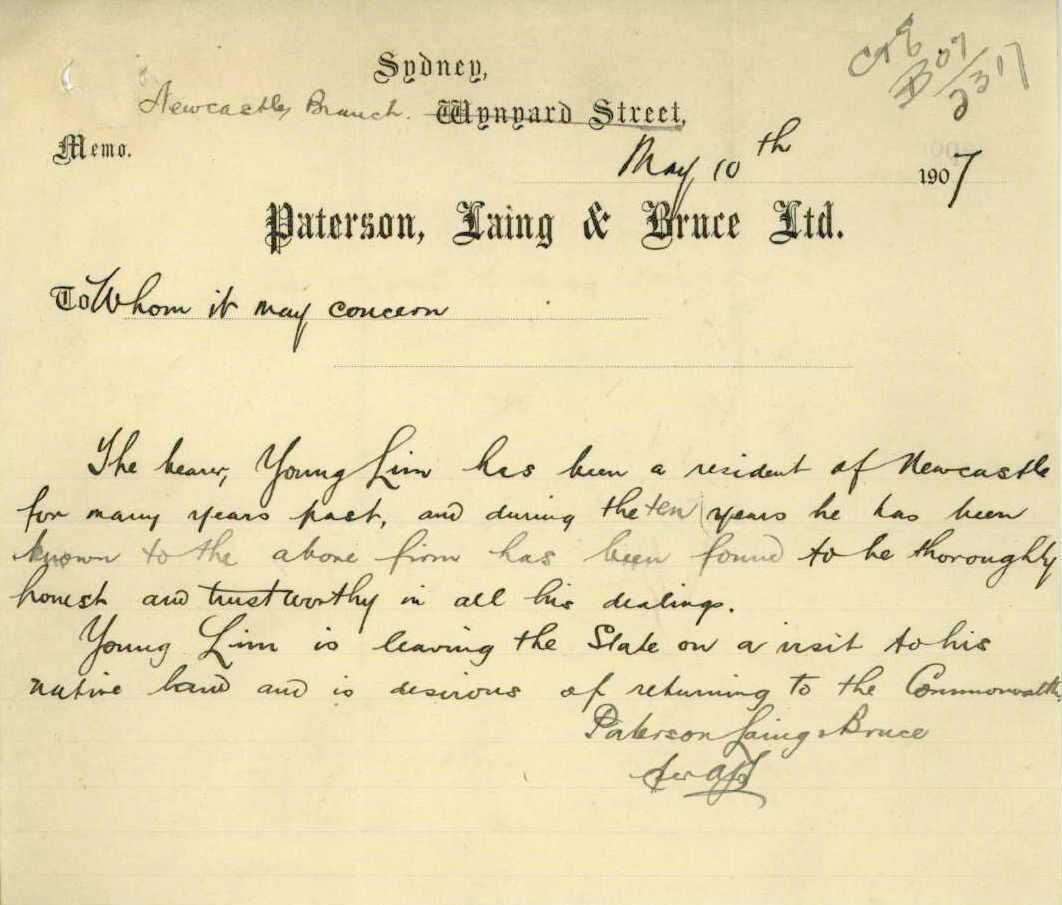 Sydney,
Newcastle Branch. Wynyard Street,
Memo.
May 10th 1907
Paterson, Laing & Bruce Ltd.
To Whom it may concern
The bearer, Young Lim has been a resident of Newcastle
for many years past, and during the ten years he has been
known to the above firm has been found to be thoroughly
honest and trustworthy in all his dealings.
Young Lim is leaving the State on a visit to his
native land and is desirous of returning to the Commonwealth.
Paterson Laing & Bruce
per